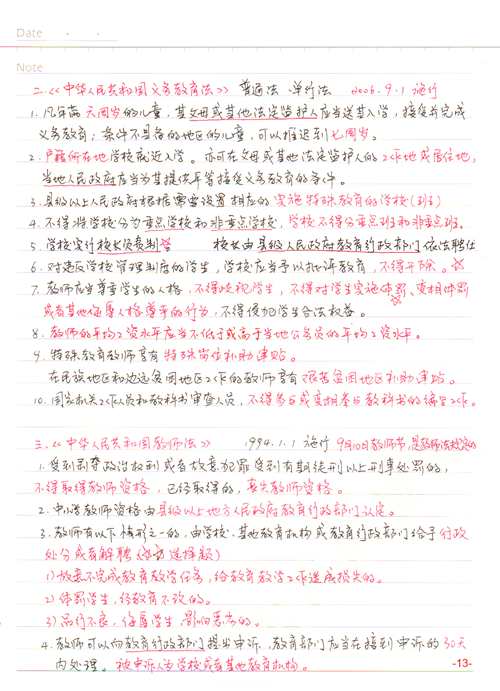 Date
Note
二.《中华人民共和国义务教育法》 普通法 单行法 2006.9.1 施行
1. 凡年满六周岁的儿童,其父母或其他法定监护人应当送其入学,接受并完成
义务教育;条件不具备的地区的儿童,可以推迟到七周岁。
2. 户籍所在地学校就近入学。亦可在父母或其他法定监护人的工作地或居住地,
当地人民政府应当为其提供平等接受义务教育的条件。
3. 县级以上人民政府根据需要设置相应的实施特殊教育的学校(班)
4. 不得将学校分为重点学校和非重点学校,学校不得分重点班和非重点班。
5. 学校实行校长负责制☆ 校长由县级人民政府教育行政部门依法聘任
6. 对违反学校管理制度的学生,学校应当予以批评教育,不得开除。☆
7. 教师应当尊重学生的人格,不得歧视学生,不得对学生实施体罚、变相体罚
或者其他侮辱人格尊严的行为,不得侵犯学生合法权益。
8. 教师的平均工资水平应当不低于或高于当地公务员的平均工资水平。
9. 特殊教育教师享有特殊岗位补助津贴。
在民族地区和边远贫困地区工作的教师享有艰苦贫困地区补助津贴。
10. 国家机关工作人员和教科书审查人员,不得参与或变相参与教科书的编写工作。
三.《中华人民共和国教师法》 1994.1.1 施行 9月10日教师节,是教师法规定的
1. 受到剥夺政治权利或者故意犯罪受到有期徒刑以上刑事处罚的,
不得取得教师资格,已经取得的,丧失教师资格。
2. 中小学教师资格由县级以上地方人民政府教育行政部门认定。
3. 教师有以下情形之一的,由学校、其他教育机构或教育行政部门给予行政
处分或者解聘(选择题)
1) 故意不完成教育教学任务,给教育教学工作造成损失的。
2) 体罚学生,经教育不改的。
3) 品行不良,侮辱学生,影响恶劣的。
4. 教师可以向教育行政部门提出申诉,教育部门应当在接到申诉的30天
内处理。被申诉人为学校或者其他教育机构。
-13-